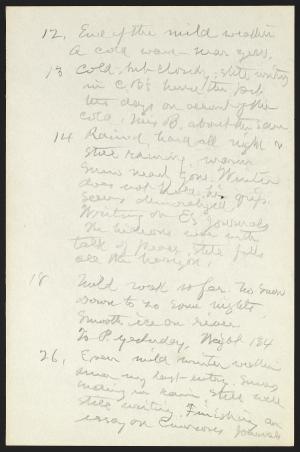 12, End of the mild weather
A cold wave near zero,
13 Cold, but cloudy; still writing
in C. B's house the past
ten days on account of the
cold. Miss B. about the same
14 Rained hard all night &
still raining, warm
Snow nearly gone. Winter
does not hold his grip.
Seems demoralized.
Writing on E's Journals
The hideous war with
talk of peace, still fills
all the horizon.
18 Mild week so far. No snow
down to 20 some nights,
Smooth ice on river
To P. yesterday, Weight 134
26, Even mild winter weather
since my last entry. Snows
ending in rain. Still well
still writing. Finishing an
essay on Emersons Journals